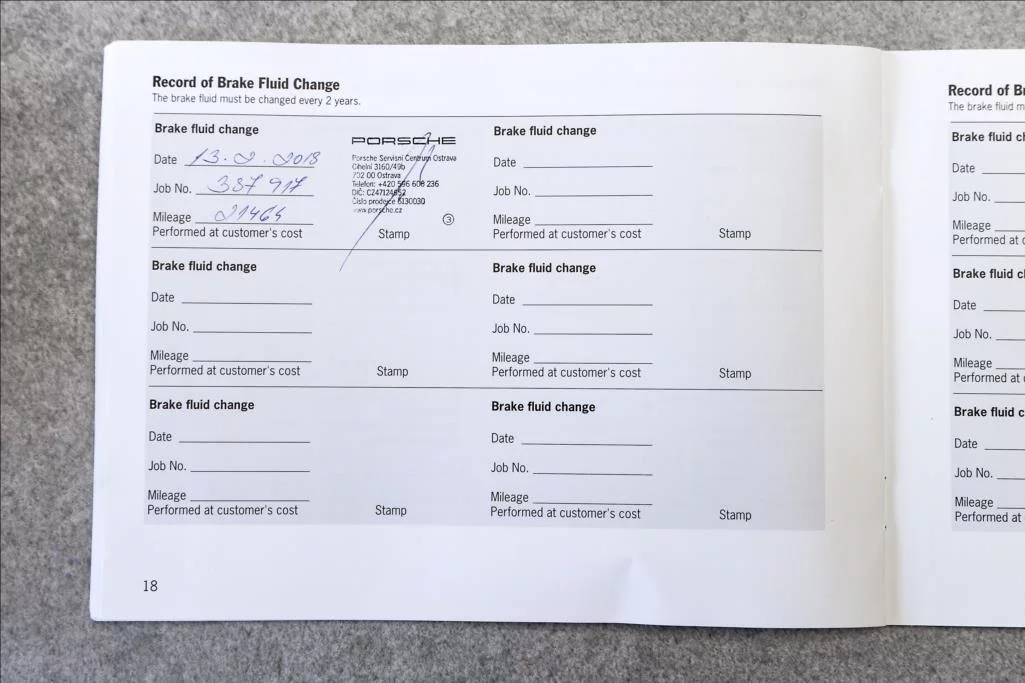 Record of Brake Fluid Change
The brake fluid must be changed every 2 years.
Brake fluid change
Date 13.2.2018
Job No. 387 917
Mileage 21464
Performed at customer's cost
PORSCHE
Porsche Servisní Centrum Ostrava
Cihelní 3160/49b
702 00 Ostrava
Telefon: +420 596 608 236
DIČ:
Číslo prodejce 6130030
www.porsche.cz
3
Stamp
Brake fluid change
Date
Job No.
Mileage
Performed at customer's cost
Stamp
Brake fluid change
Date
Job No.
Mileage
Performed at customer's cost
Stamp
Brake fluid change
Date
Job No.
Mileage
Performed at customer's cost
Stamp
Brake fluid change
Date
Job No.
Mileage
Performed at customer's cost
Stamp
Brake fluid change
Date
Job No.
Mileage
Performed at customer's cost
Stamp
18
Record of B
The brake fluid m
Brake fluid c
Date
Job No.
Mileage
Performed at c
Brake fluid c
Date
Job No.
Mileage
Performed at
Brake fluid c
Date
Job No.
Mileage
Performed at